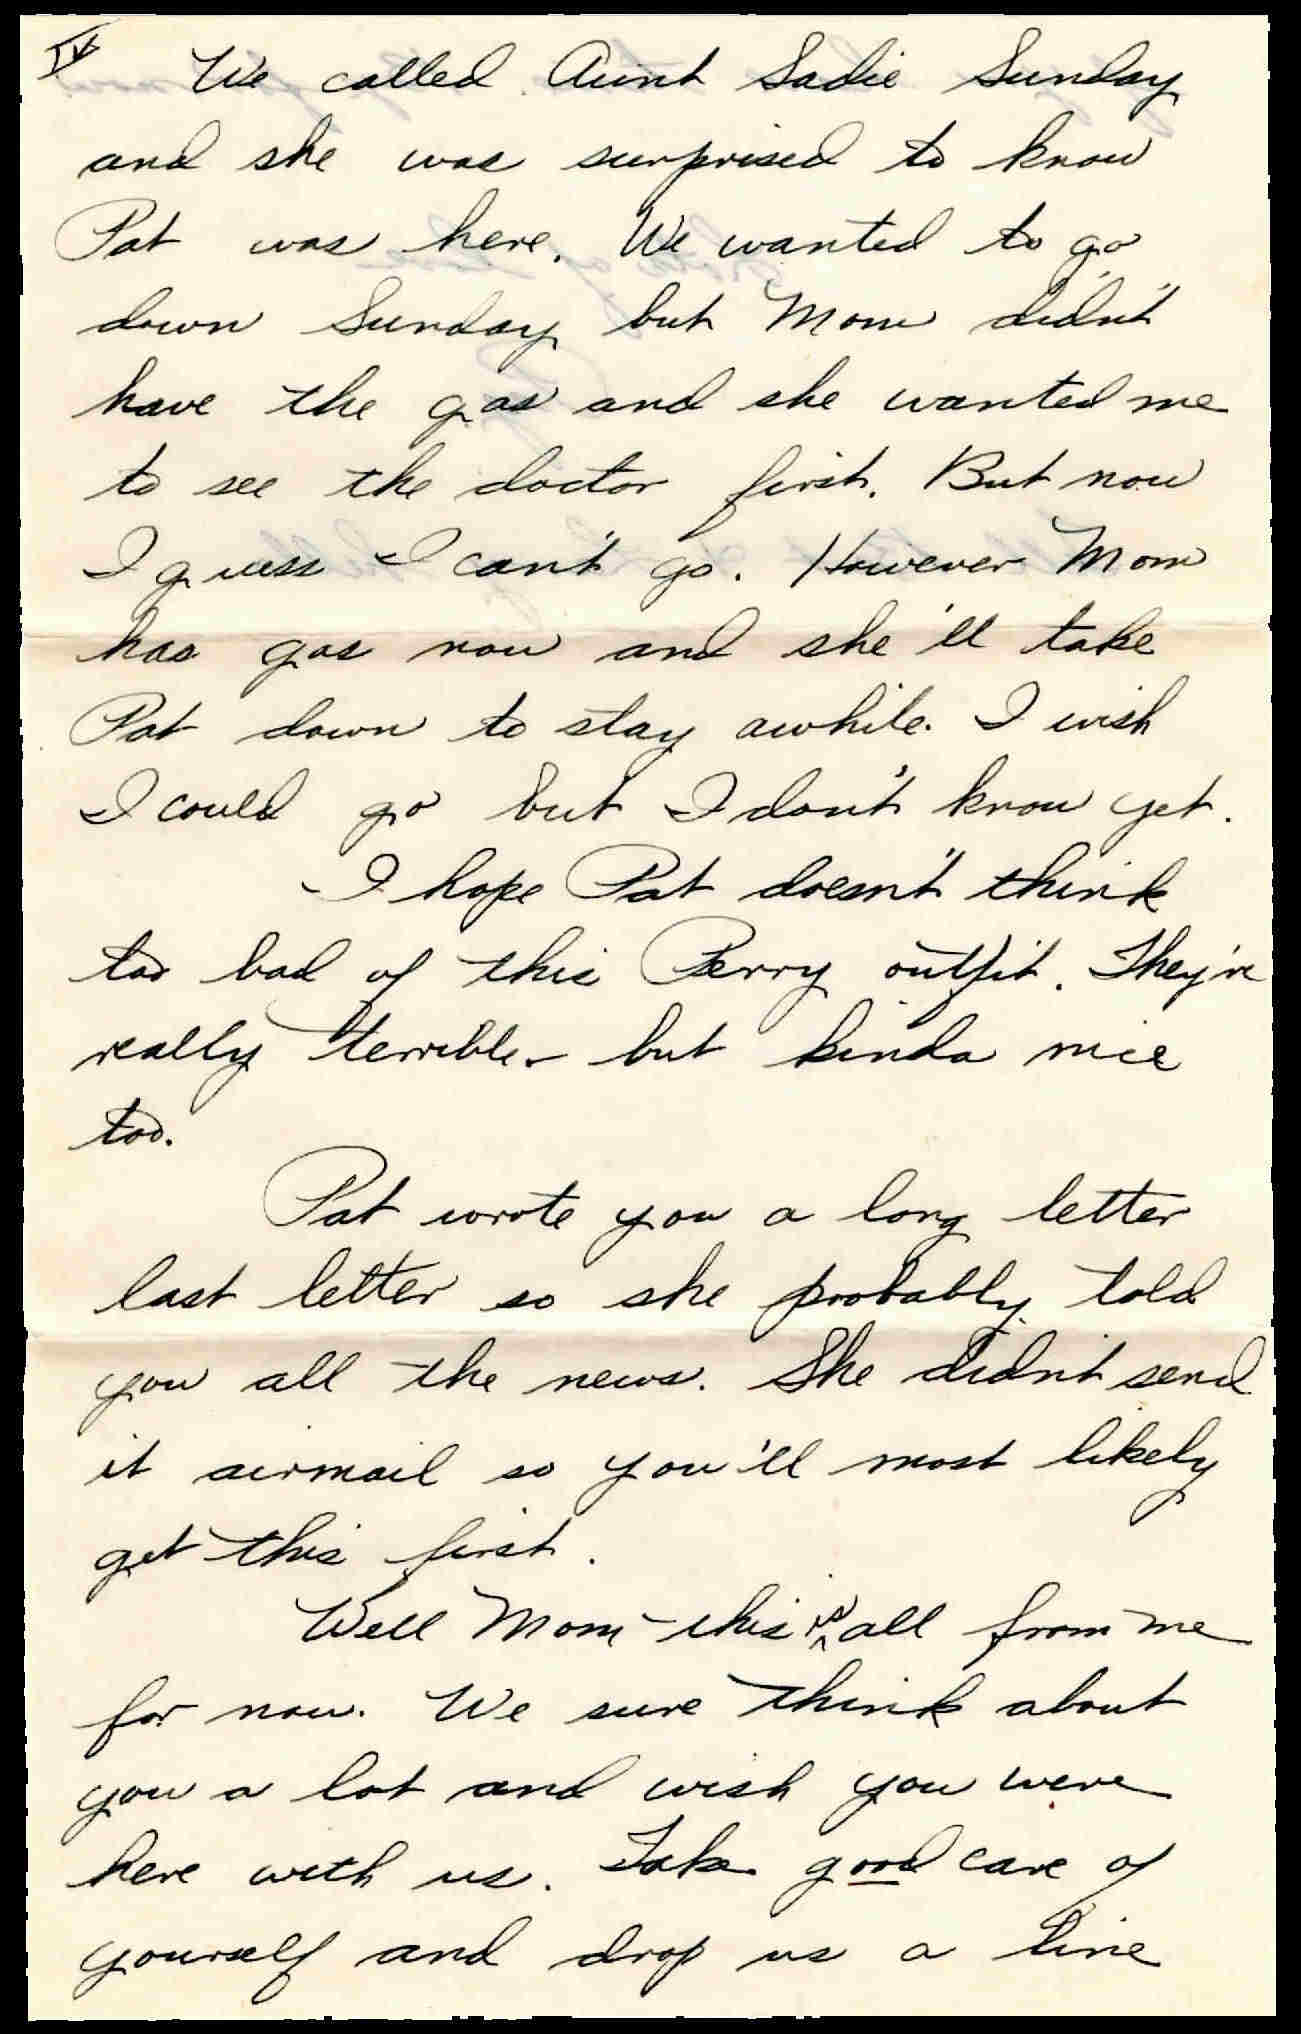 IV
We called Aunt Sadie Sunday
and she was surprised to know
Pat was here. We wanted to go
down Sunday but Mom didn't
have the gas and she wanted me
to see the doctor first. But now
I guess I can't go. However Mom
has gas now and she'll take
Pat down to stay awhile. I wish
I could go but I don't know yet.
I hope Pat doesn't think
too bad of this Perry outfit. They're
really terrible - but kinda nice
too.
Pat wrote you a long letter
last letter so she probably told
you all the news. She didn't send
it airmail so you'll most likely
get this first.
Well Mom this is all from me
for now. We sure think about
you a lot and wish you were
here with us. Take good care of
yourself and drop us a line